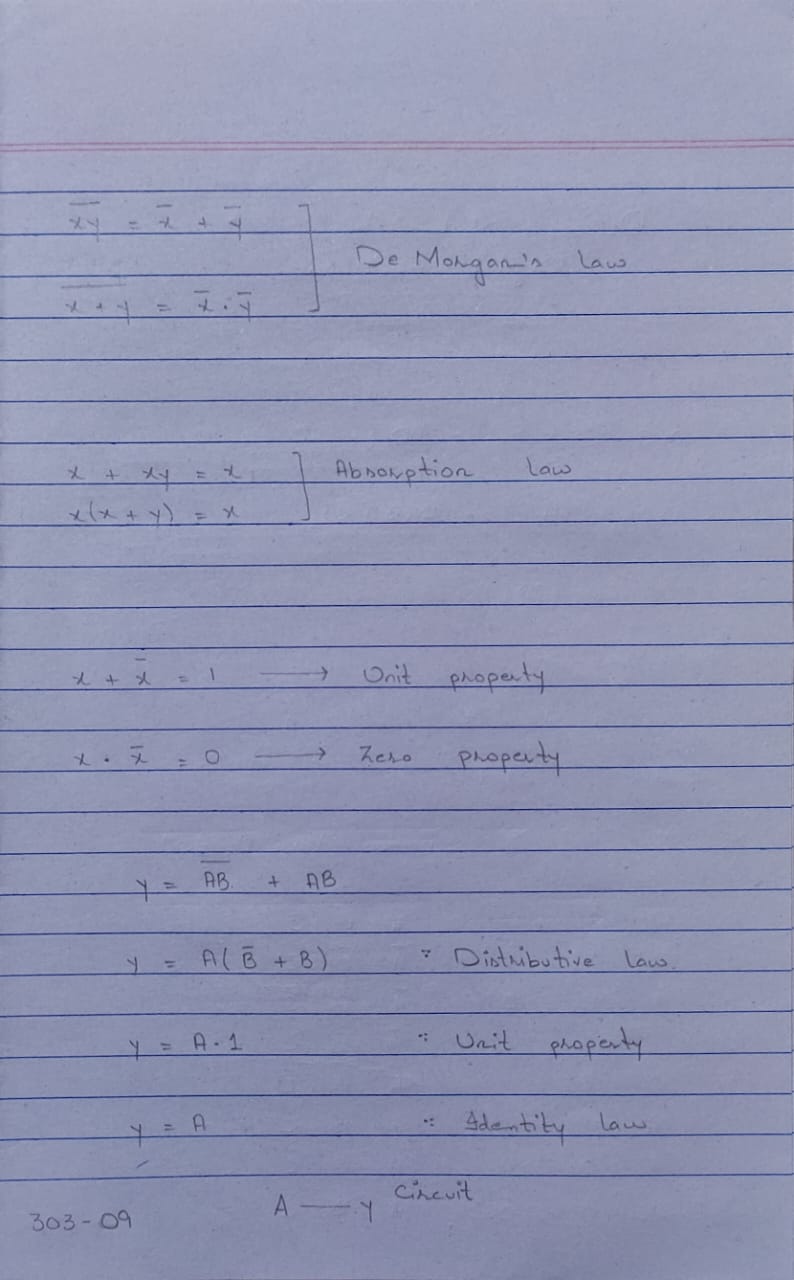 x̅y̅ = x̅ + y̅
De Morgan's law
x̅ ̅+̅ ̅y̅ = x̅ . y̅
x + xy = x
Absorption law
x(x + y) = x
x + x̅ = 1 ⟶ Unit property
x . x̅ = 0 ⟶ Zero property
y = A̅B̅ + AB
y = A(B̅ + B) ∵ Distributive law.
y = A . 1 ∵ Unit property
y = A ∵ Identity law
A — y Circuit
303-09